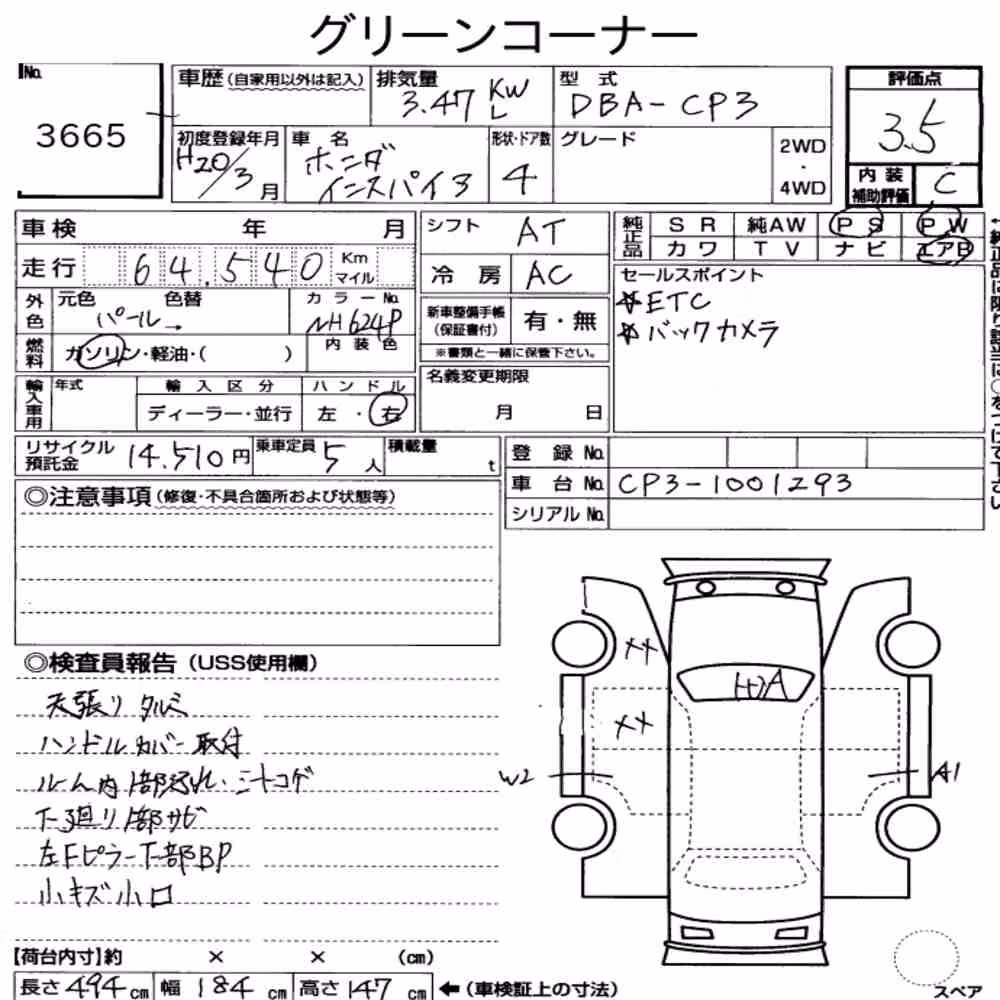 グリーンコーナー
No.
3665
車歴(自家用以外は記入)
排気量
3.47 KW L
型式
DBA-CP3
評価点
3.5
初度登録年月
H20/3月
車名
ホンダ
インスパイヤ
形状・ドア数
4
グレード
2WD
・
4WD
内装
補助評価
C
車検 年 月
シフト AT
純正品
SR 純AW PS PW
カワ TV ナビ エアB
走行 64,540 Km マイル
冷房 AC
セールスポイント
☆ETC
☆バックカメラ
外色
元色 色替
パール →
カラーNo.
NH624P
新車整備手帳
(保証書付)
有・無
※書類と一緒に保管下さい。
燃料
ガソリン・軽油・( )
内装色
輸入車用
年式
輸入区分
ディーラー・並行
ハンドル
左・右
名義変更期限
月 日
リサイクル
預託金
14,510円
乗車定員 5人
積載量 t
登録No.
車台No. CP3-1001293
シリアルNo.
◎注意事項(修復・不具合箇所および状態等)
◎検査員報告(USS使用欄)
天張りタルミ
ハンドルカバー取付
ルーム内1部汚れ・シートコゲ
下廻り1部サビ
左Fピラー下部BP
小キズ小凹
XX
XX
W2
A1
【荷台内寸】約 × × (cm)
長さ494cm 幅184cm 高さ147cm ←(車検証上の寸法)
スペア